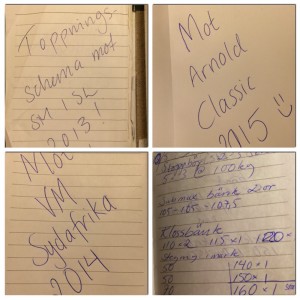 Toppnings-
schema mot
SM i SL
2013!
Mot
Arnold
Classic
2015 :)
Mot
VM
Sydafrika
2014
100kg
bänk
105-105-107,5
Klossbänk
110×2 115×1 120×
50 140×1
50 150×1
160×1